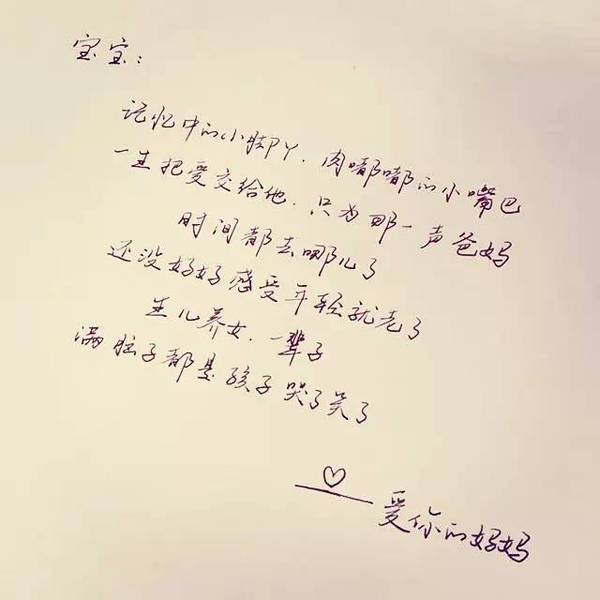 宝宝：
记忆中的小脚丫，肉嘟嘟的小嘴巴
一生把爱交给他，只为那一声爸妈
时间都去哪儿了
还没好好感受年轻就老了
生儿养女，一辈子
满脑子都是孩子哭了笑了
♡
——爱你的妈妈